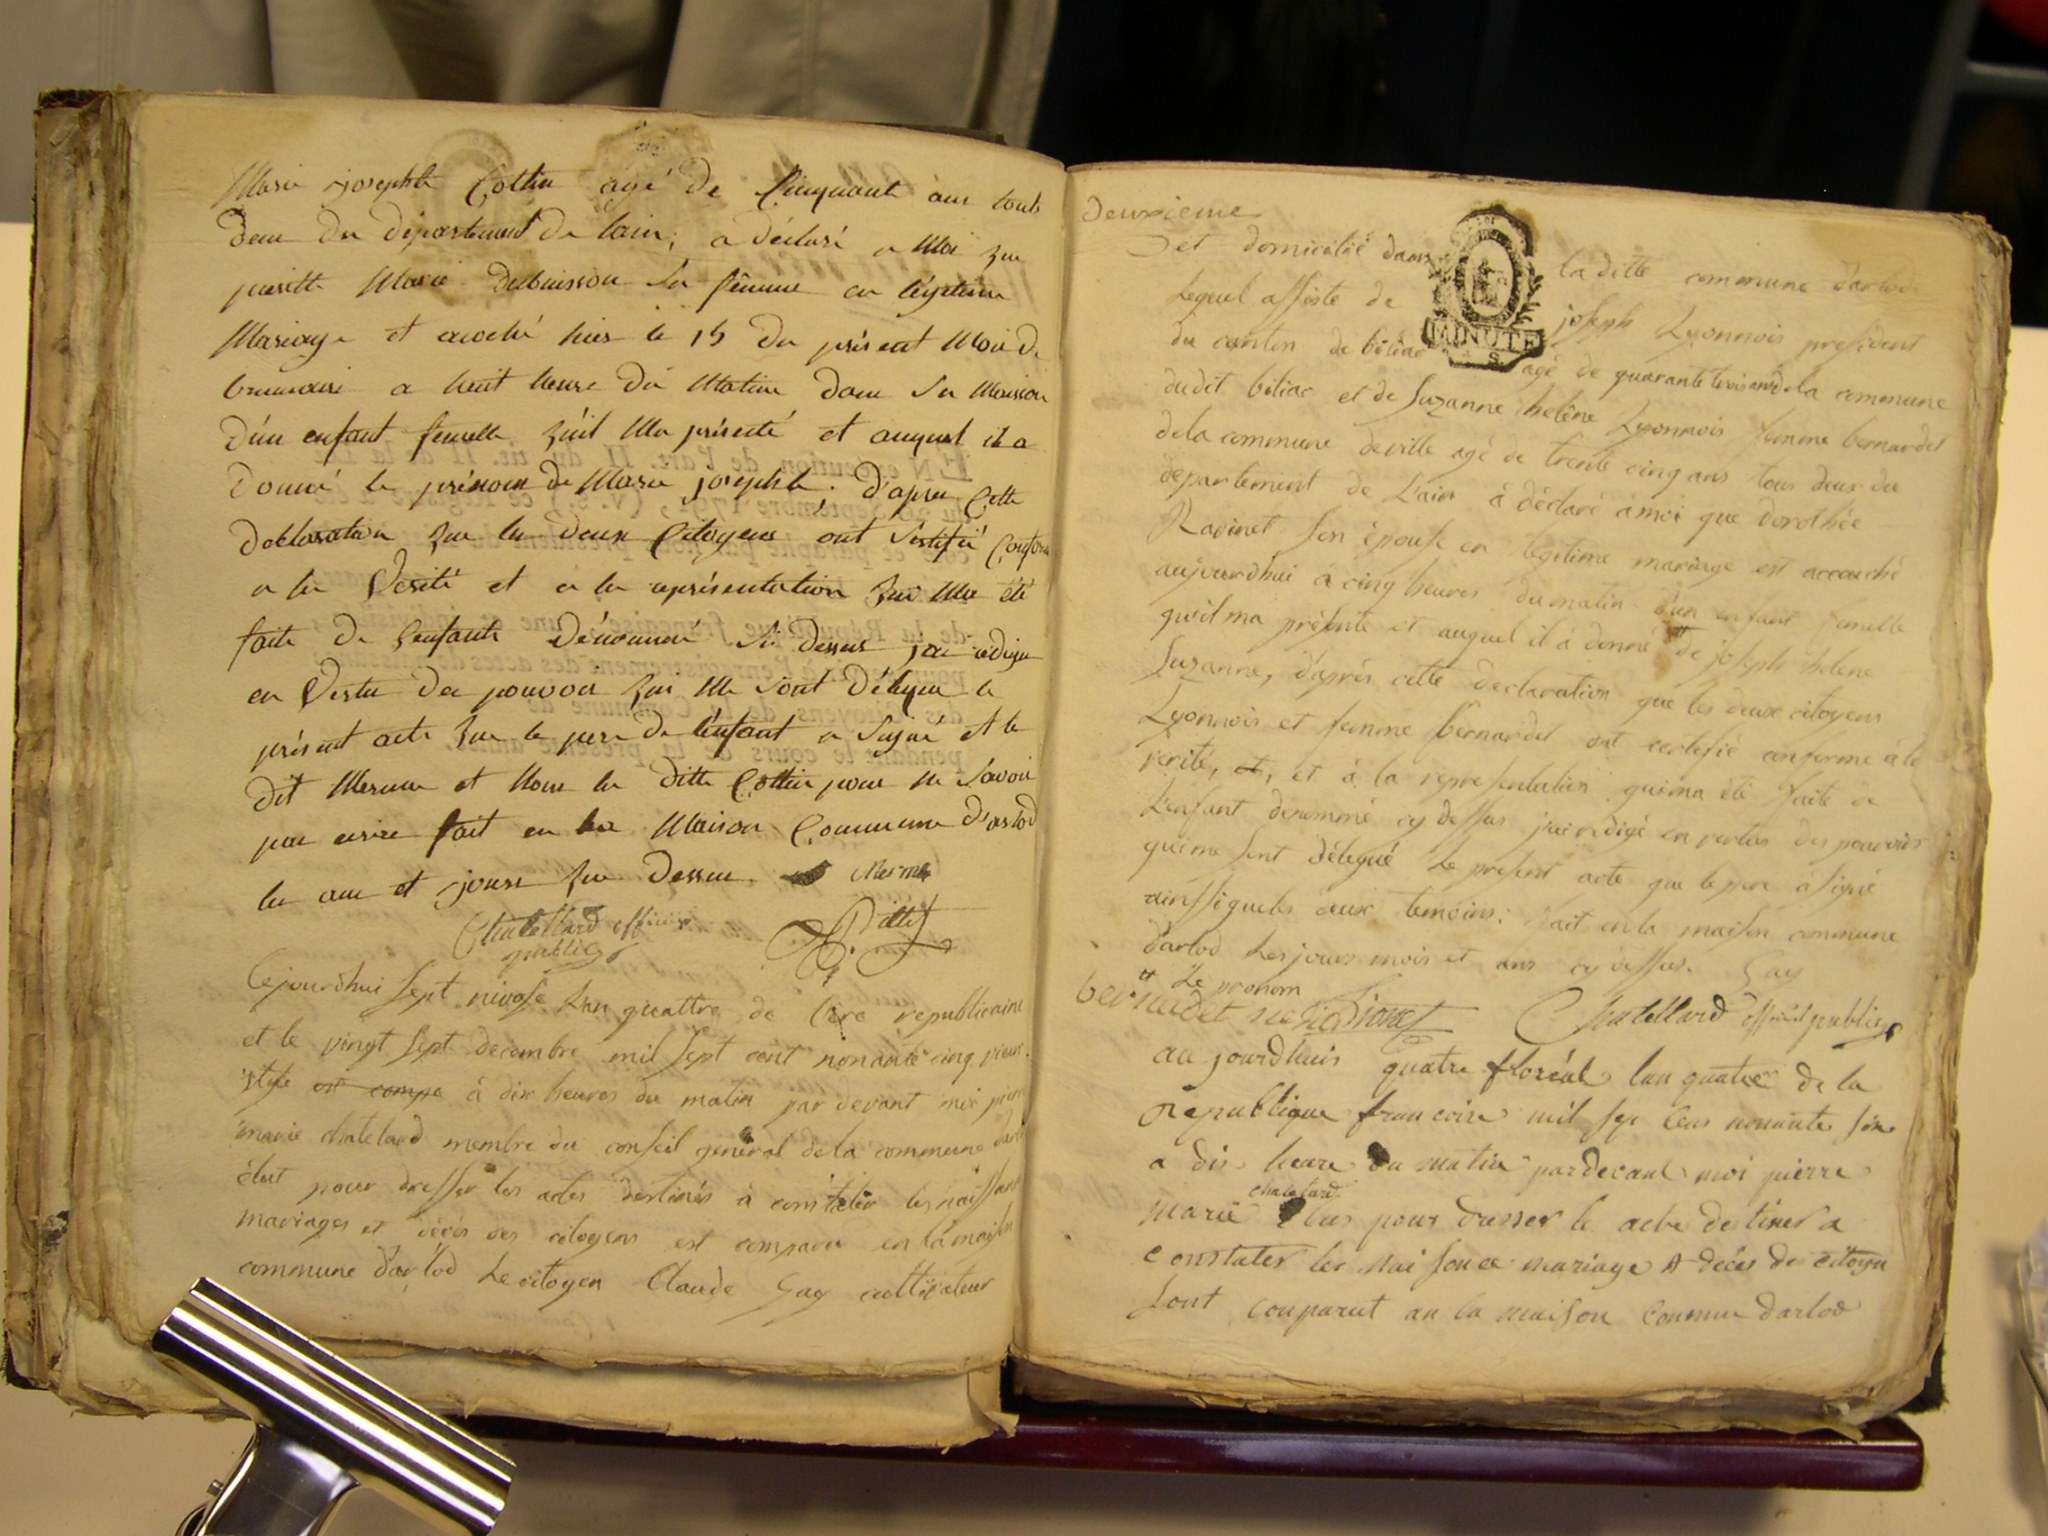 Marie josephte Cottin agé de Cinquante ans touts
deux du département de lain, a déclaré a Moi que
Marie Dubuisson sa femme en légitime
Mariage et acouché hier le 15 du présent Mois de
brumaire a huit heure du Matin dans sa Maision
d'un enfant femelle qu'il Ma présenté et auquel il a
donné le prénom de Marie josephte. d'apres Cette
declaration que les deux Citoyens ont Sertifié Conforme
a la Verité et a la représentation qui Ma été
faite de Lenfant dénommé Si dessus jai rédigé
en Vertu des pouvoir qui Me sont délégué le
présent acte que le pere de l'enfant a Signé et le
dit Mermet et Non la ditte Cottin pour ne Savoir
pas ecrire fait en la Maison Commune d'arlod
les an et jours que dessus Mermet
Chatellard officier
public
Pittet
Cejourdhui Sept nivose Lan quattre de l'ère republicaine
et le vingt Sept decembre mil Sept cent nonante cinq vieux
style est compa à dix heures du matin par devant moi pierre
marie chatelard membre du conseil général de la commune darlod
élut pour dresser les actes destinés à constater les naissances
mariages et décès des citoyens est comparu en la maison
commune d'arlod Le citoyen Claude Gay cultivateur
Deuxieme
et domicilié dans la ditte commune Darlod
Lequel assisté de joseph Lyonnois president
MINUTE
du canton de biliac agé de quarante trois ans de la commune
dudit biliac et de Suzanne helène Lyonnois femme bernardet
de la commune de ville agé de trente cinq ans tous deux du
département de L'ain à déclaré à moi que dorothée
Ravinet Son épouse en legitime mariage est accouché
aujourdhui à cinq heures du matin d'un enfant femelle
qu'il ma présenté et auquel il à donné de joseph helene
Suzanne, d'après cette declaration que les deux citoyens
Lyonnois et femme bernardet ont certifié conforme à la
verité, et, et à la representation qui ma été faite de
L'enfant denommé cy dessus j'ai redigé en vertus des pouvoirs
qui me sont délégué Le present acte que le pere à signé
ainssi que les deux temoins. fait en la maison commune
d'arlod Les jours mois et ans cy dessus. Gay
Le prenom
bernardet Chatellard officié public
au jourdhuis quatre floréal lan quatre de la
République francoise mil sep Cens nonante six
a dis heure du matin par devant moi pierre
chatelard
marie Elus pour dresser le acte destiner a
constater les naisance mariage et décés de citoyn
sont comparut an la maison Commun darlod